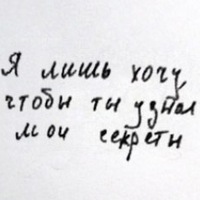 Я лишь хочу
чтобы ты узнал
мои секреты